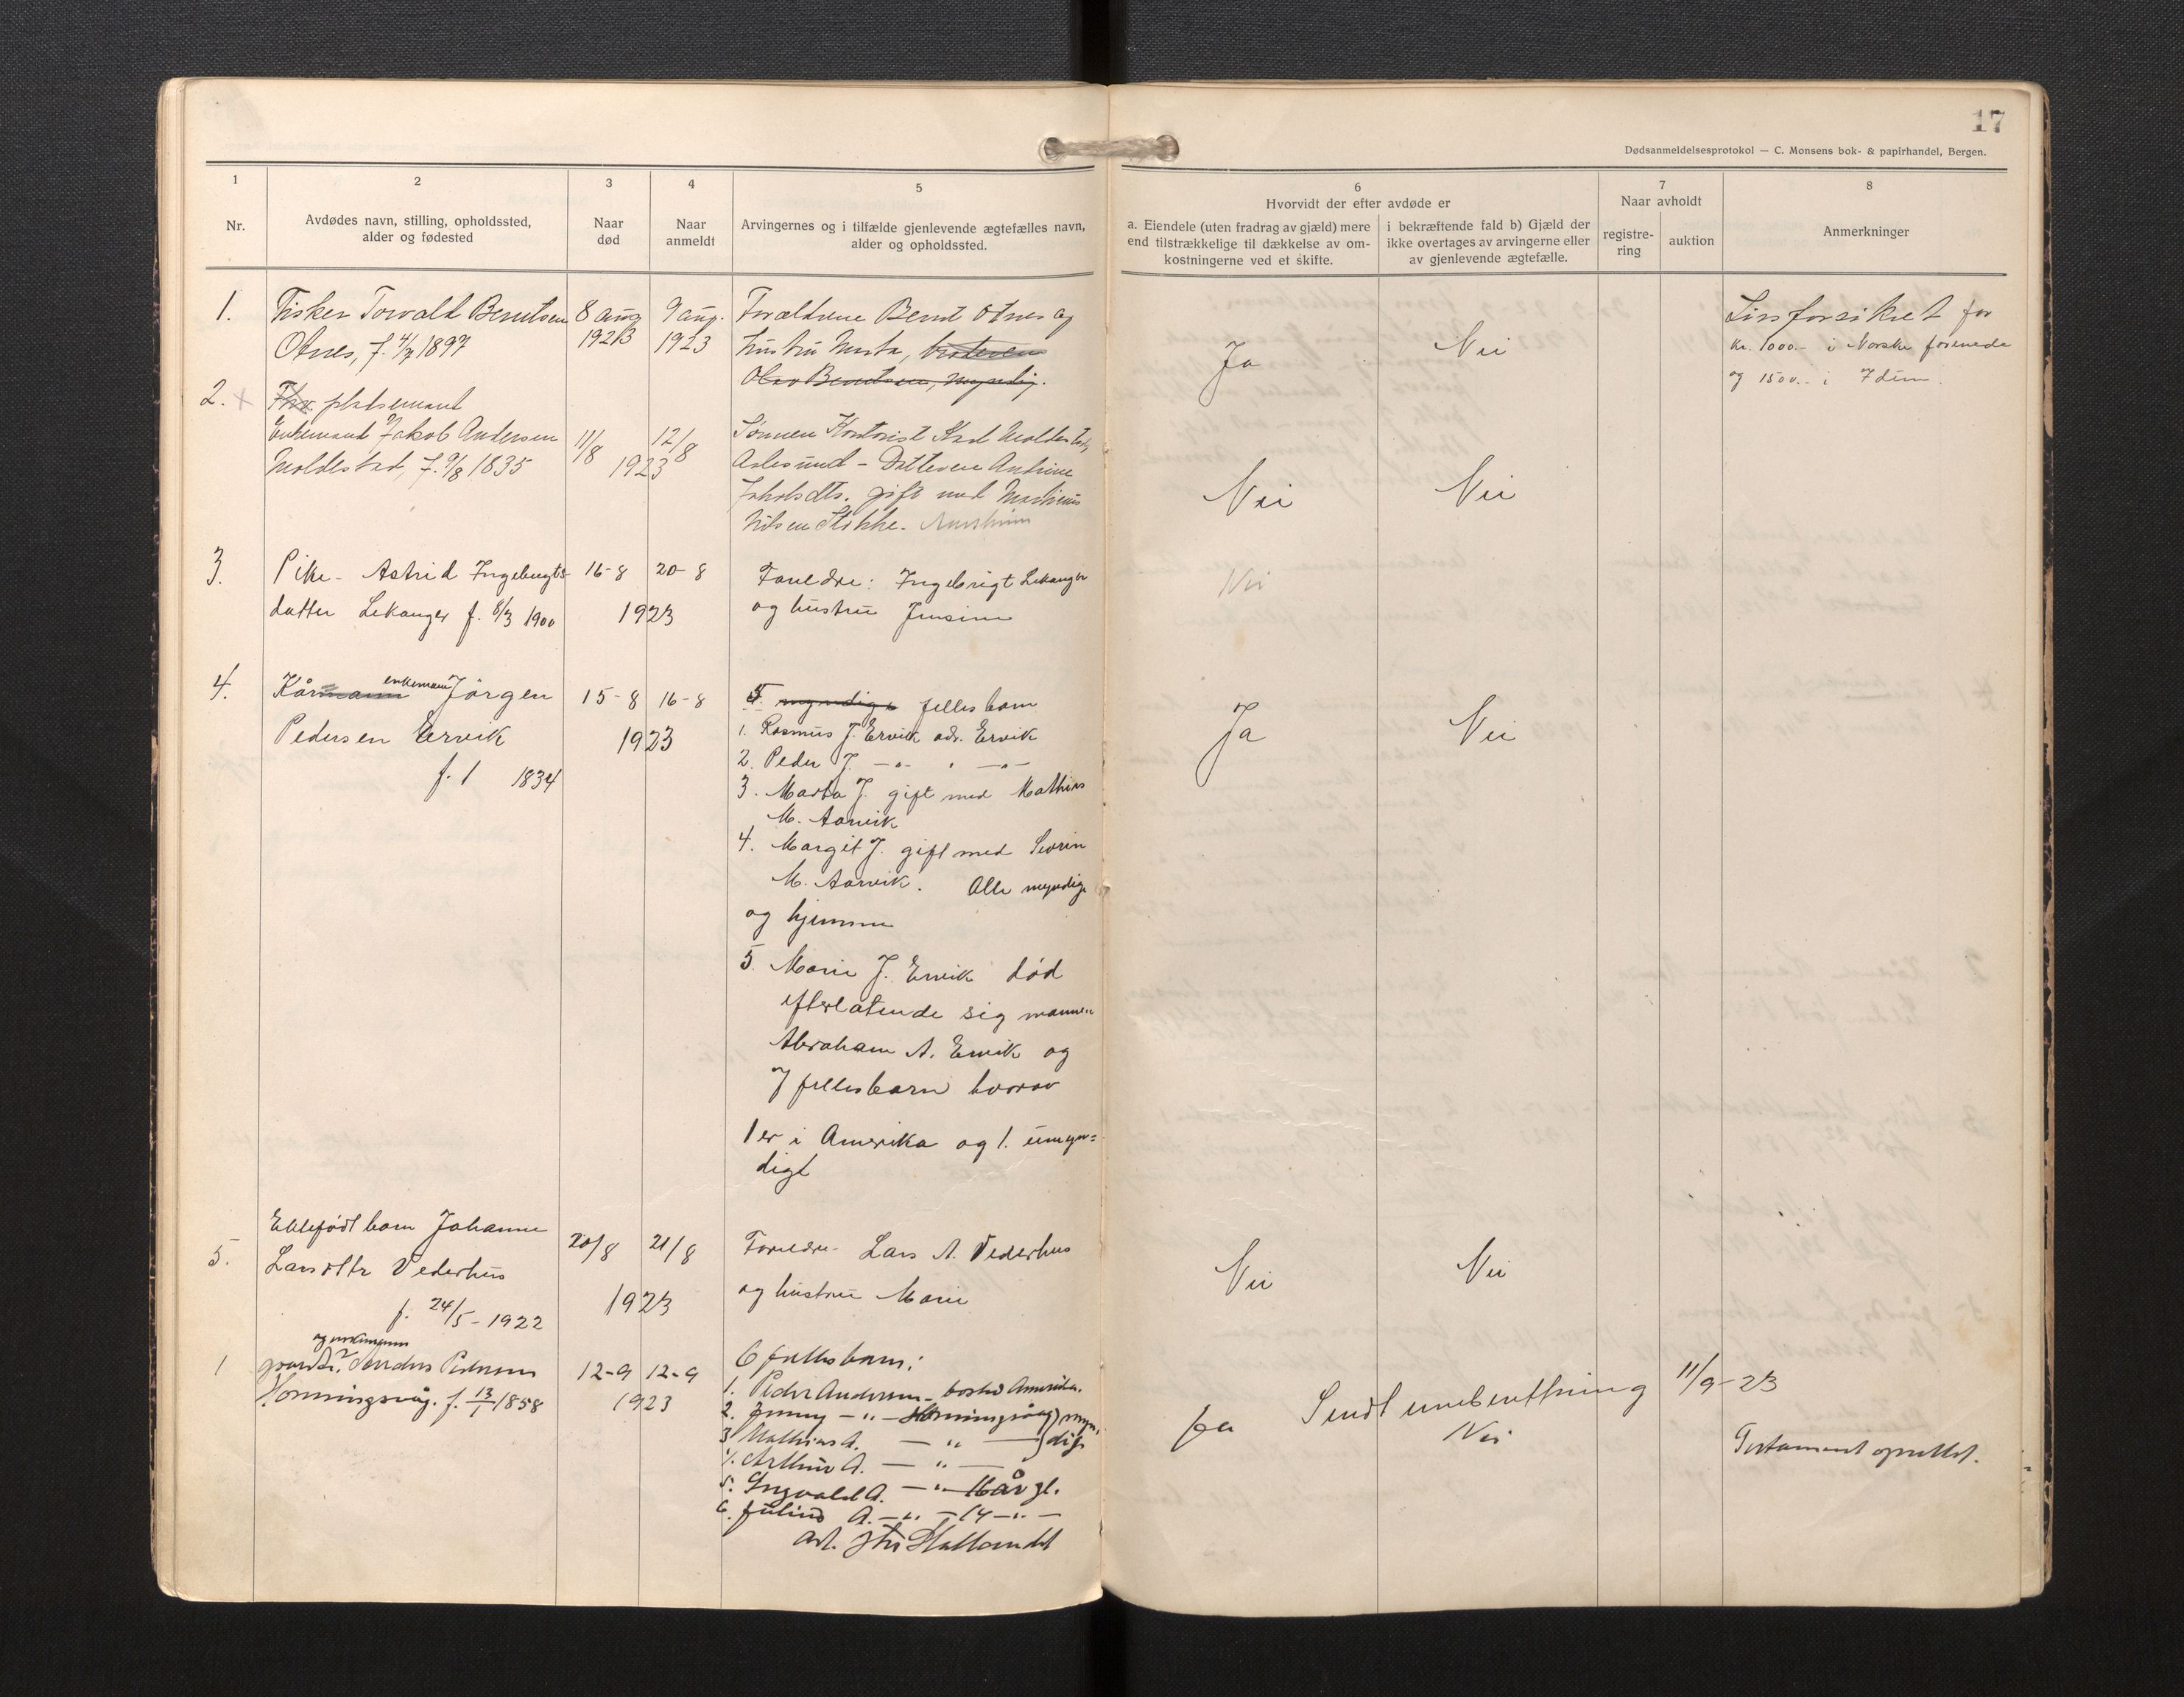 17
Dødsanmeldelsesprotokol — C. Monsens bok- & papirhandel, Bergen.
1 2 3 4 5
Nr.
Avdødes navn, stilling, opholdssted,
alder og fødested
Naar
død
Naar
anmeldt
Arvingernes og i tilfælde gjenlevende ægtefælles navn,
alder og opholdssted.
6
Hvorvidt der efter avdøde er
a. Eiendele (uten fradrag av gjæld) mere
end tilstrækkelige til dækkelse av om-
kostningerne ved et skifte.
i bekræftende fald b) Gjæld der
ikke overtages av arvingerne eller
av gjenlevende ægtefælle.
7
Naar avholdt
registre-
ring
auktion
8
Anmerkninger
1.
Fisker Torvald Berntsen
Otnes, f. 4/7 1897
8 aug
1923
9 aug.
1923
Forældrene Bernt Otnes og
hustru Marta, broderen
Olav Berntsen, myndig.
Ja
Nei
Livsforsikret for
kr. 1000.- i Norske forenede
og 1500.- i
2.
plasemand
Enkemand Jakob Andersen
Moldestad, f. 9/8 1835
11/8
12/8
1923
Sønnen Kontorist
Aalesund - Datteren Antrine
Jakobsdtr. gift med Martinus
Nilsen
Nei
Nei
3.
Pike - Astrid Ingebrigts-
datter Lekanger f. 8/3 1900
16-8
20-8
1923
Foreldre: Ingebrigt Lekanger
og hustru Jensine
Nei
4.
Kårmann enkemann Jørgen
Pedersen Ervik
f. 1 1834
15-8
16-8
1923
5 myndige felles barn
1. Rasmus J. Ervik adr. Ervik
2. Peder J. -"- " -"-
3. Marta J. gift med Mathias
M. Aarvik
4. Margit J. gift med Sevrin
M. Aarvik. Alle myndige
og hjemme
5. Marie J. Ervik død
efterlatende sig mannen
Abraham A. Ervik og
7 fellesbarn hvorav
1 er i Amerika og 1. umyn=
digt
Ja
Nei
5.
Ektefødt barn Johanne
Larsdtr Vederhus
f. 24/5 - 1922
20/8
21/8
1923
Foreldre - Lars A. Vederhus
og hustru Marie
Nei
Nei
1
og enkemann
gaardbr. Anders Pedersen
Honningsvåg. f. 13/1 1858
12-9
12-9
1923
6 fellesbarn:
1. Peder Andersen - bosted Amerika.
2. Jenny -"- Honningsvåg) myn-
3 Mathias A. -"- dige
4. Arthur A. -"-
5. Ingvald A. -"- 16 år gl.
6. Julius A. -"- 14 -"-
Ja
Sendt innberetning 11/9-23
Nei
Testament oprettet.